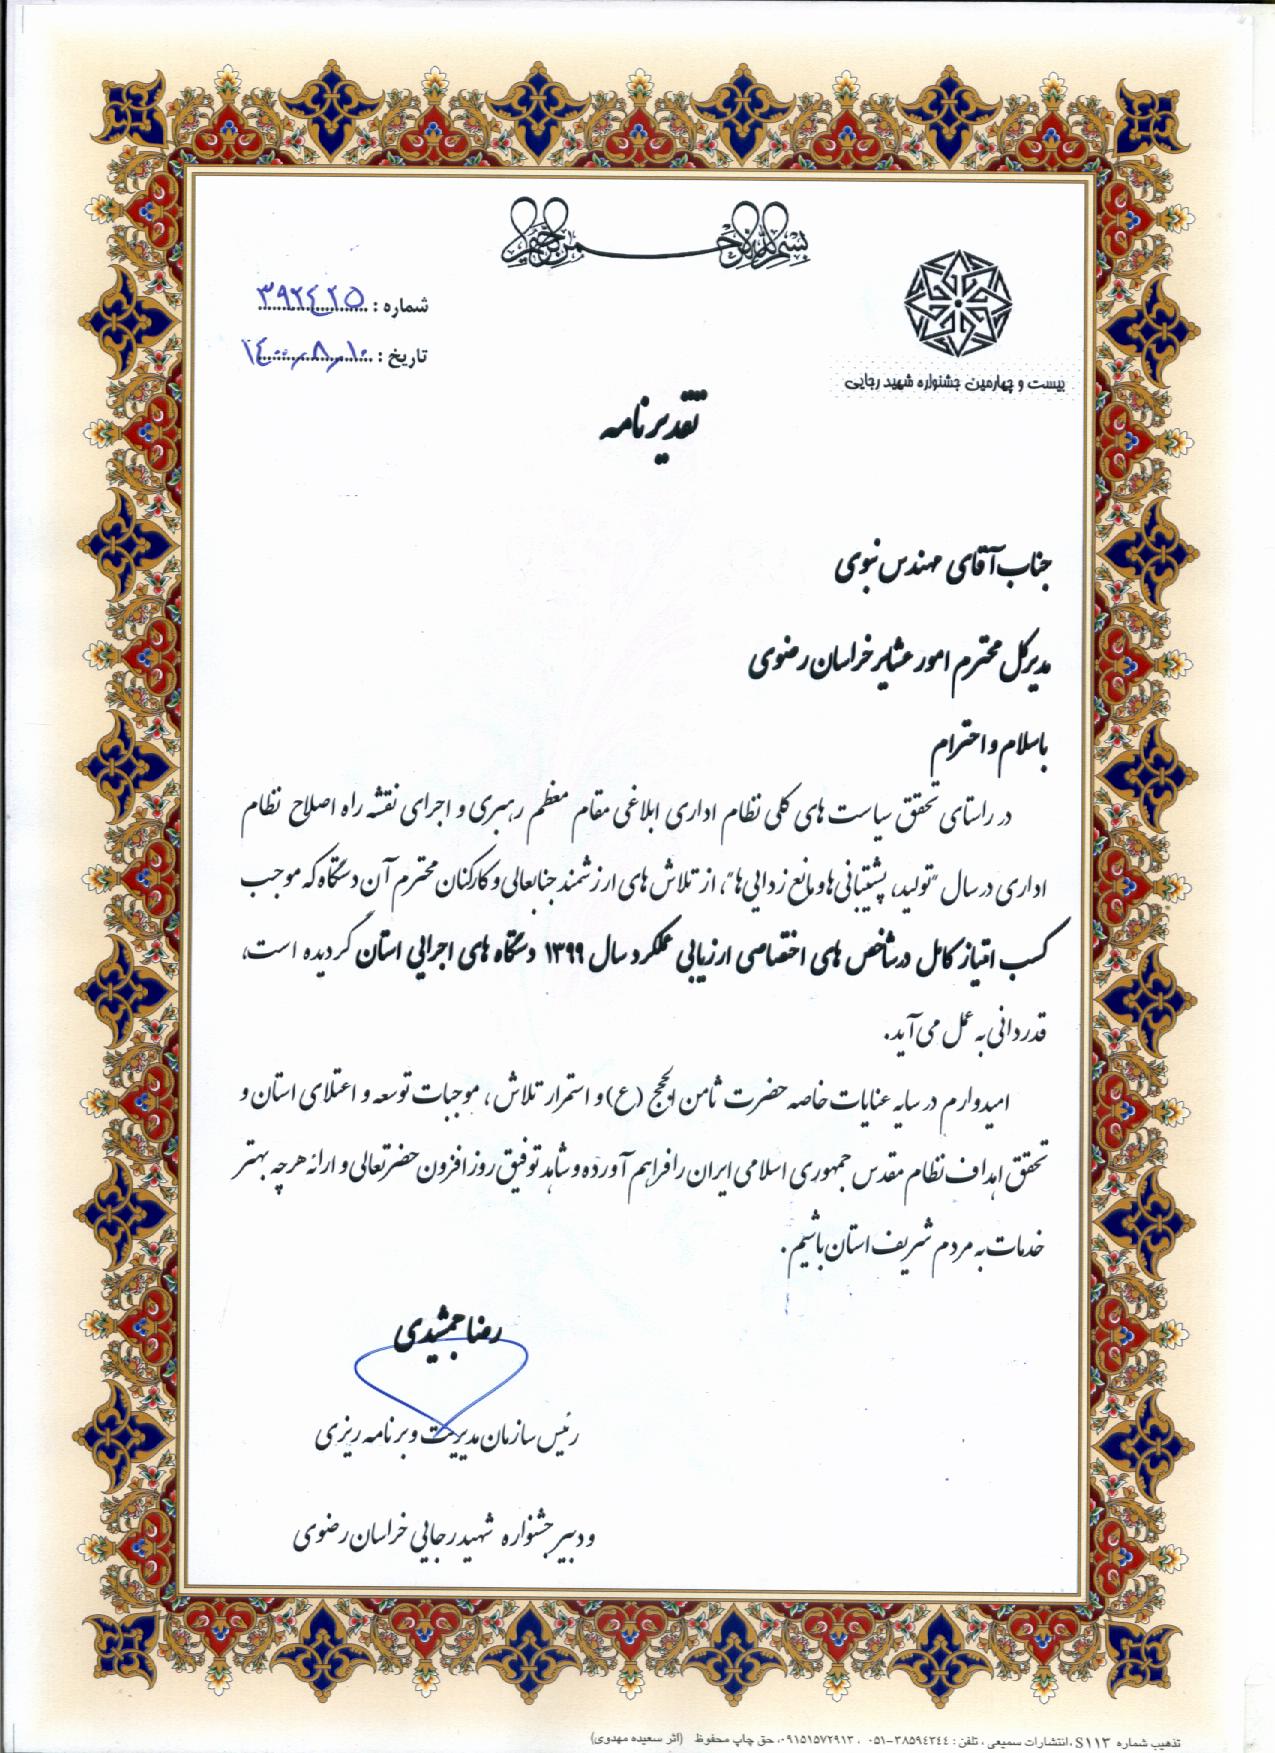 بسم الله الرحمن الرحیم
شماره : ۳۹۲۴۲۵
تاریخ : ۱۴۰۰٫۸٫۱۰
بیست و چهارمین جشنواره شهید رجایی
تقدیرنامه
جناب آقای مهندس نبوی
مدیرکل محترم امور عشایر خراسان رضوی
با سلام و احترام
در راستای تحقق سیاست های کلی نظام اداری ابلاغی مقام معظم رهبری و اجرای نقشه راه اصلاح نظام
اداری در سال "تولید، پشتیبانی ها و مانع زدایی ها"، از تلاش های ارزشمند جنابعالی و کارکنان محترم آن دستگاه که موجب
کسب امتیاز کامل در شاخص های اختصاصی ارزیابی عملکرد سال ۱۳۹۹ دستگاه های اجرایی استان گردیده است،
قدردانی به عمل می آید.
امیدوارم در سایه عنایات خاصه حضرت ثامن الحجج (ع) و استمرار تلاش، موجبات توسعه و اعتلای استان و
تحقق اهداف نظام مقدس جمهوری اسلامی ایران را فراهم آورده و شاهد توفیق روزافزون حضرتعالی و ارائه هرچه بهتر
خدمات به مردم شریف استان باشیم.
رضا جمشیدی
رئیس سازمان مدیریت و برنامه ریزی
و دبیر جشنواره شهید رجایی خراسان رضوی
تذهیب شماره S۱۱۳، انتشارات سمیعی، تلفن : ۳۸۵۹۴۳۴۴-۰۵۱ ، ۰۹۱۵۱۵۷۲۹۱۳، حق چاپ محفوظ (اثر سعیده مهدوی)